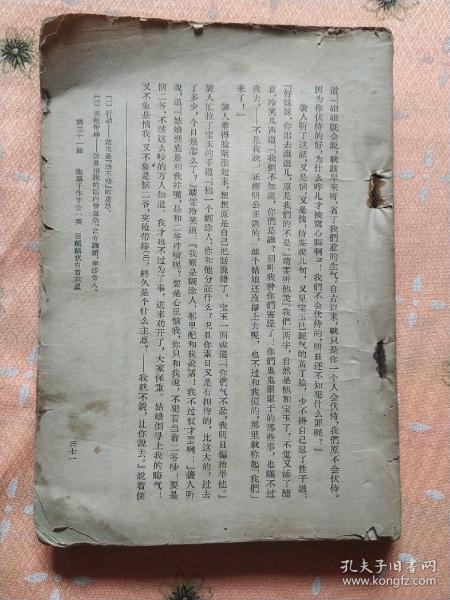 道『姐姐既会說,就該早來呀,省了我們惹的生气。自古以來,就只是你一个人会伏侍,我們原不会伏侍。
因为你伏侍的好,为什么昨儿才挨窝心脚啊!我們不会伏侍的,明日还不知犯什么罪呢?』
襲人听了这話,又是惱,又是愧,待要說几句,又見宝玉已經气的黃了脸,少不得自己忍了性子道:
『好妹妹,你出去逛逛儿,原是我們的不是。』晴雯听他說『我們』两字,自然是他和宝玉了,不觉又添了醋
意,冷笑几声道:『我倒不知道,你們是誰?別叫我替你們害臊了!你們鬼鬼祟祟干的那些事,也瞞不过
我去。——不是我說:正經明公正道的,連个姑娘还沒掙上去呢,也不过和我似的,那里就称起「我們」
來了!』
襲人羞得脸紫脹起來,想想原是自己把話說錯了。宝玉一面說道:『你們气不忿,我明日偏抬举他。』
襲人忙拉了宝玉的手道:『他一个糊塗人,你和他分証什么?况且你素日又是有担待的,比这大的,过去
了多少,今日是怎么了?』晴雯冷笑道:『我原是糊塗人,那里配和我說話!我不过奴才罢咧!』襲人听
說,道:『姑娘到底是和我拌嘴,是和二爷拌嘴呢?要是心里惱我,你只和我說,不犯着当着二爷吵;要是
惱二爷,不該这么吵的万人知道。我才也不过为了事,進來劝开了,大家保重。姑娘倒尋上我的晦气!
又不象是惱我,又不象是惱二爷,夹槍帶棒,終久是个什么主意?——我就不說,讓你說去。』說着便
第三十一回
三七一
孔夫子旧书网